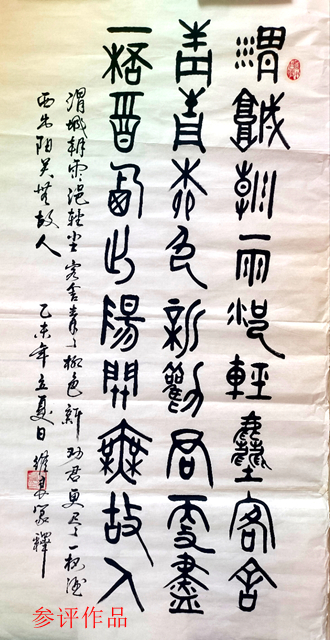 渭城朝雨浥輕塵客舍
青青柳色新勸君更盡
一桮酒西出陽關無故人
渭城朝雨浥轻尘客舍青々柳色新劝君更尽一杯酒
西出阳关无故人 乙未年立夏日 篆釋
参评作品